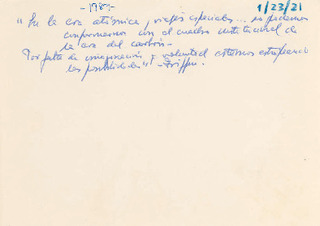 - 1987 -
1/23/21
"En la era atómica, viajes espaciales... no podemos
conformarnos con el cuadro institucional de
la era del carbón -
Por falta de imaginación y voluntad estamos
las posibilidades" -